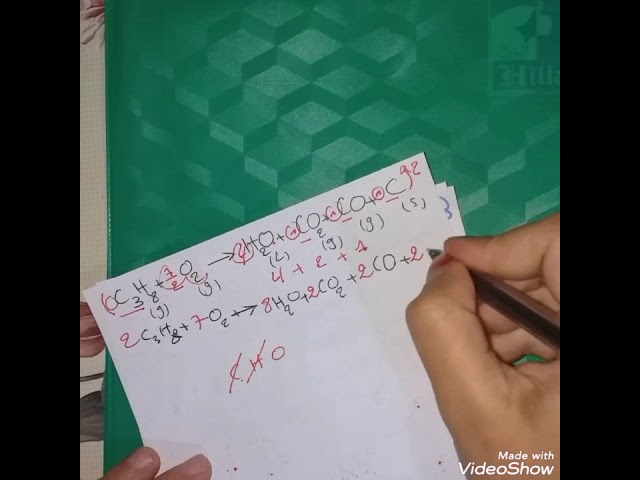 (C₃H₈ + 7/2 O₂ → 4H₂O + 1CO₂ + 1CO + 1C)×2
(g) (g) (L) (g) (g) (s)
4 + 2 + 1
2C₃H₈ + 7O₂ → 8H₂O + 2CO₂ + 2CO + 2
C.H O
Hilla
Made with
VideoShow